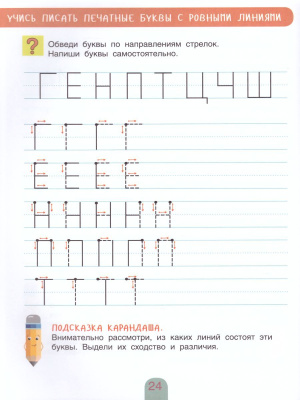 УЧИСЬ ПИСАТЬ ПЕЧАТНЫЕ БУКВЫ С РОВНЫМИ ЛИНИЯМИ
?
Обведи буквы по направлениям стрелок.
Напиши буквы самостоятельно.
Г Е Н П Т Ц Ч Ш
Г Г Г Г
Е Е Е Е
Н Н Н Н Н
П П П П П
Т Т Т
ПОДСКАЗКА КАРАНДАША.
Внимательно рассмотри, из каких линий состоят эти
буквы. Выдели их сходство и различия.
24